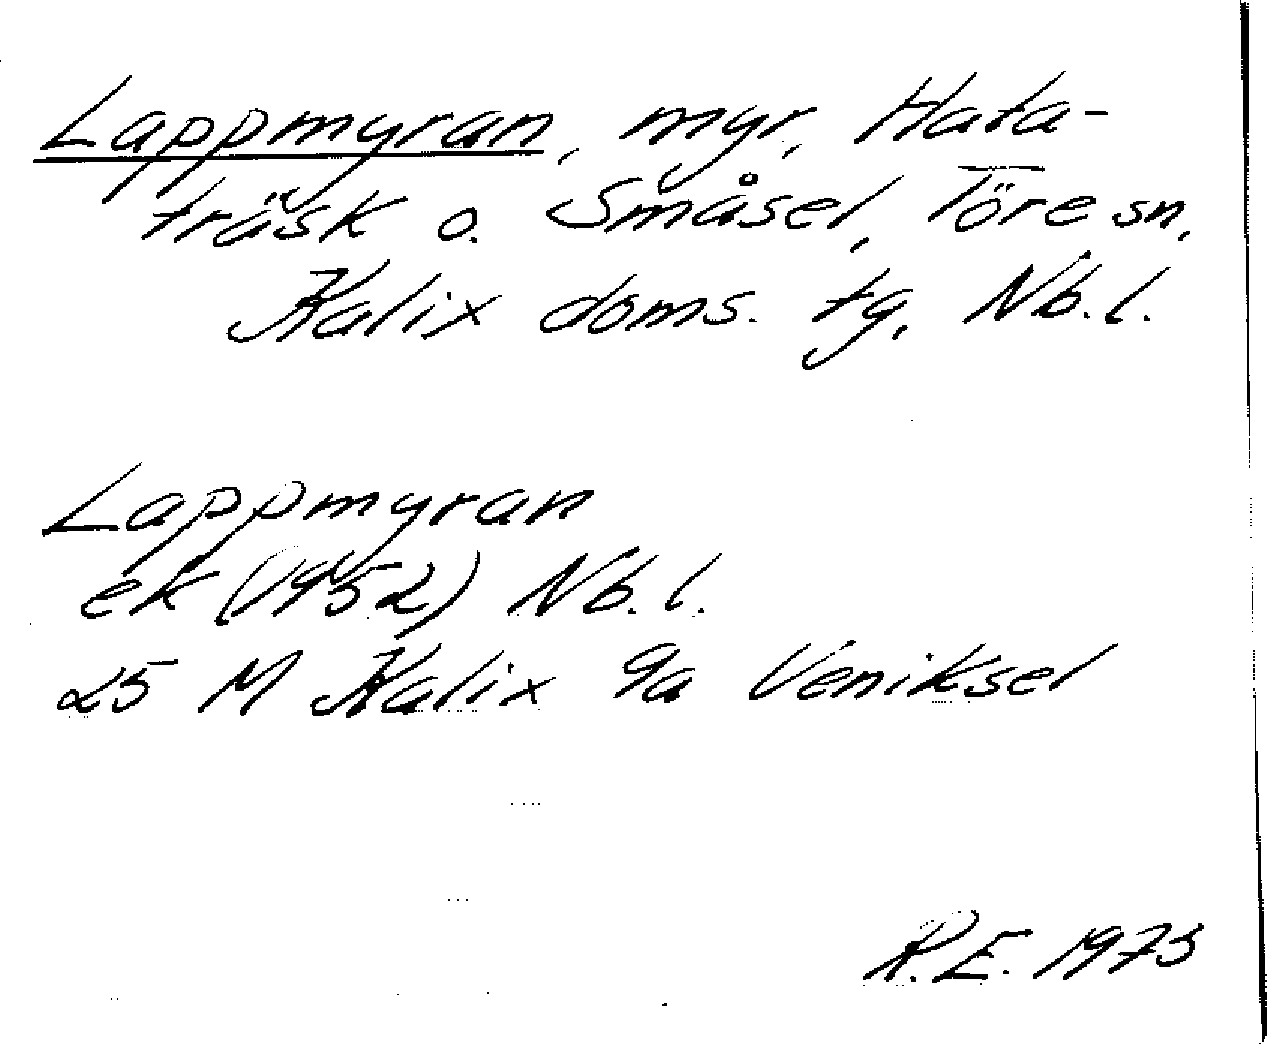 Lappmyran, myr, Hata-
träsk o. Småsel, Töre sn,
Kalix doms. tg, Nb.l.
Lappmyran
ek (1952) Nb.l.
25 M Kalix 9a Veniksel
R.E. 1973